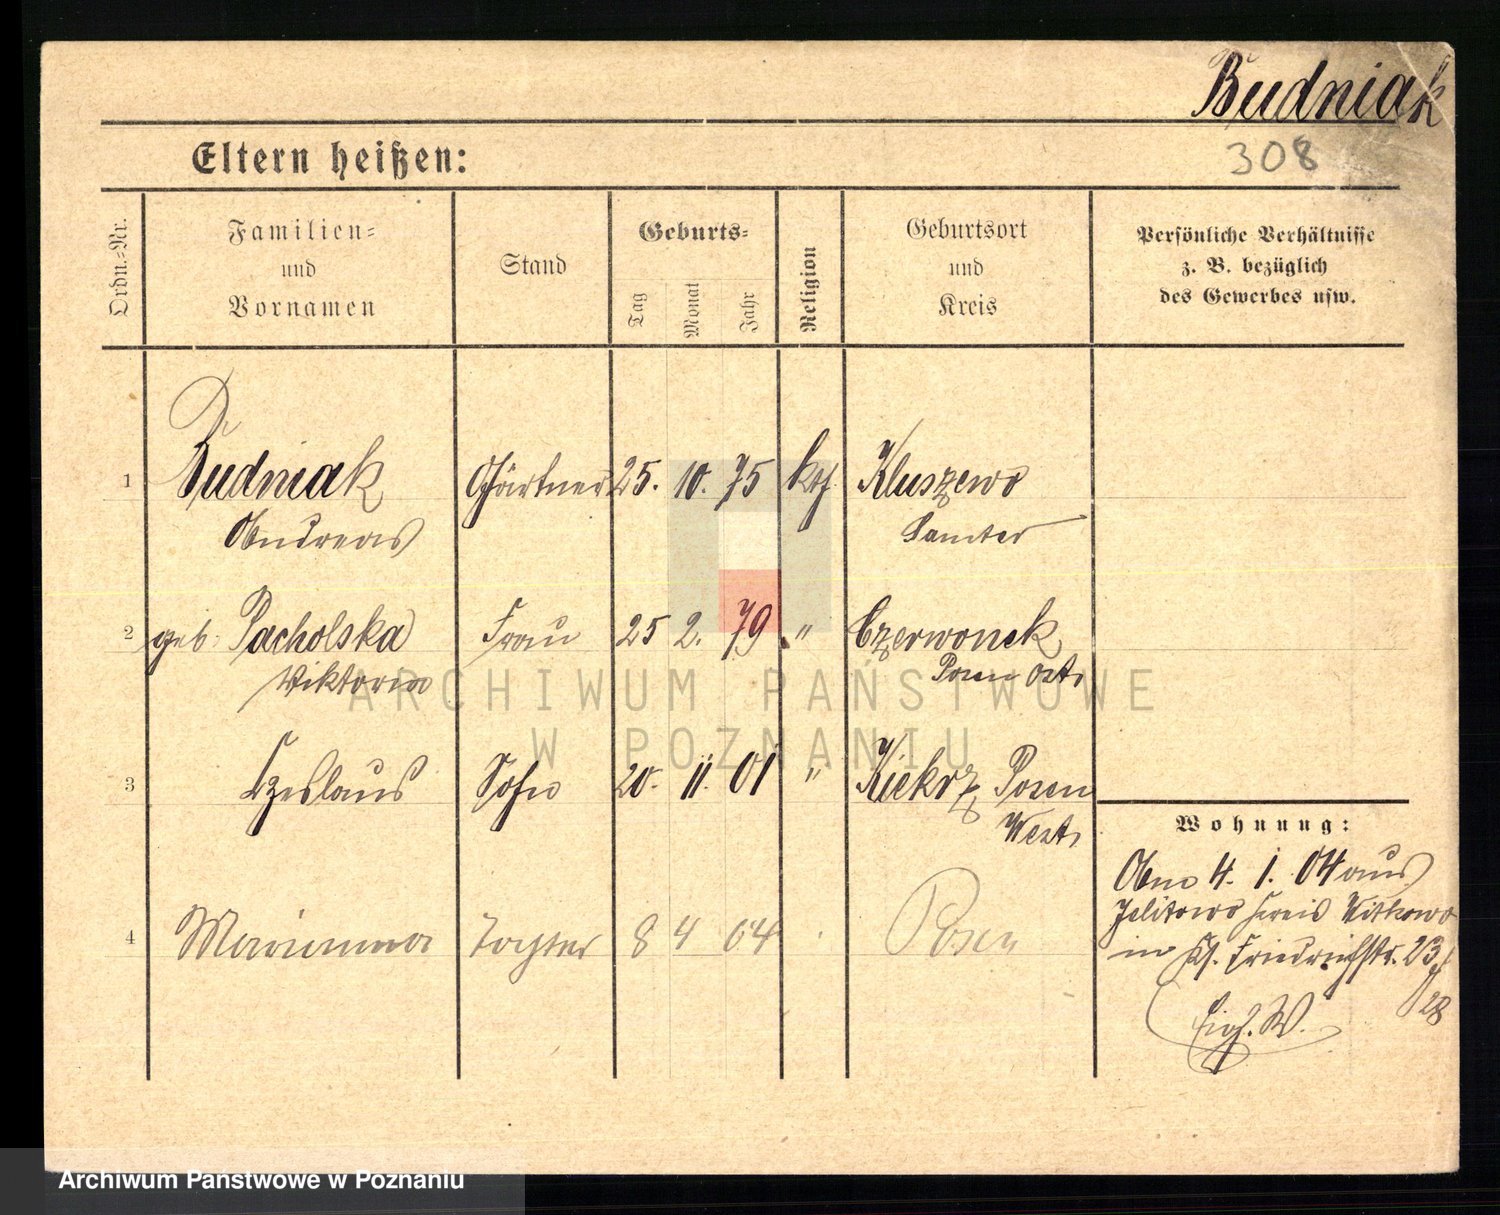 Budniak
308
Eltern heißen:
Ordn.-Nr.
Familien-
und
Vornamen
Stand
Geburts-
Tag
Monat
Jahr
Religion
Geburtsort
und
Kreis
Persönliche Verhältnisse
z. B. bezüglich
des Gewerbes usw.
1 Budniak Gärtner 25. 10. 75 kth Kluszewo
Andreas Samter
2 geb. Pacholska Frau 25 2. 79 " Czerwonak
Viktoria Posen Ost.
3 Czeslaus Sohn 20. 11. 01 " Kiekrz Posen
West.
Wohnung:
Am 4. 1. 04 aus
Jelitowo Kreis Witkowo
4 Marianna Tochter 8 4 04 Posen
in Friedrichstr. 23
28
W.
ARCHIWUM PAŃSTWOWE
W POZNANIU
Archiwum Państwowe w Poznaniu